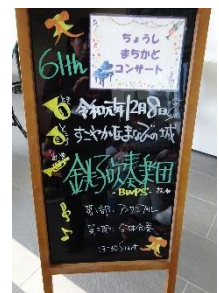 61th
ちょうし
まちかど
コンサート
令和元年12月8日
すこやかなまなびの城
銚子吹奏楽団
-BWPS-
第1部 アンサンブル
第2部 全体合奏
13:30 Start